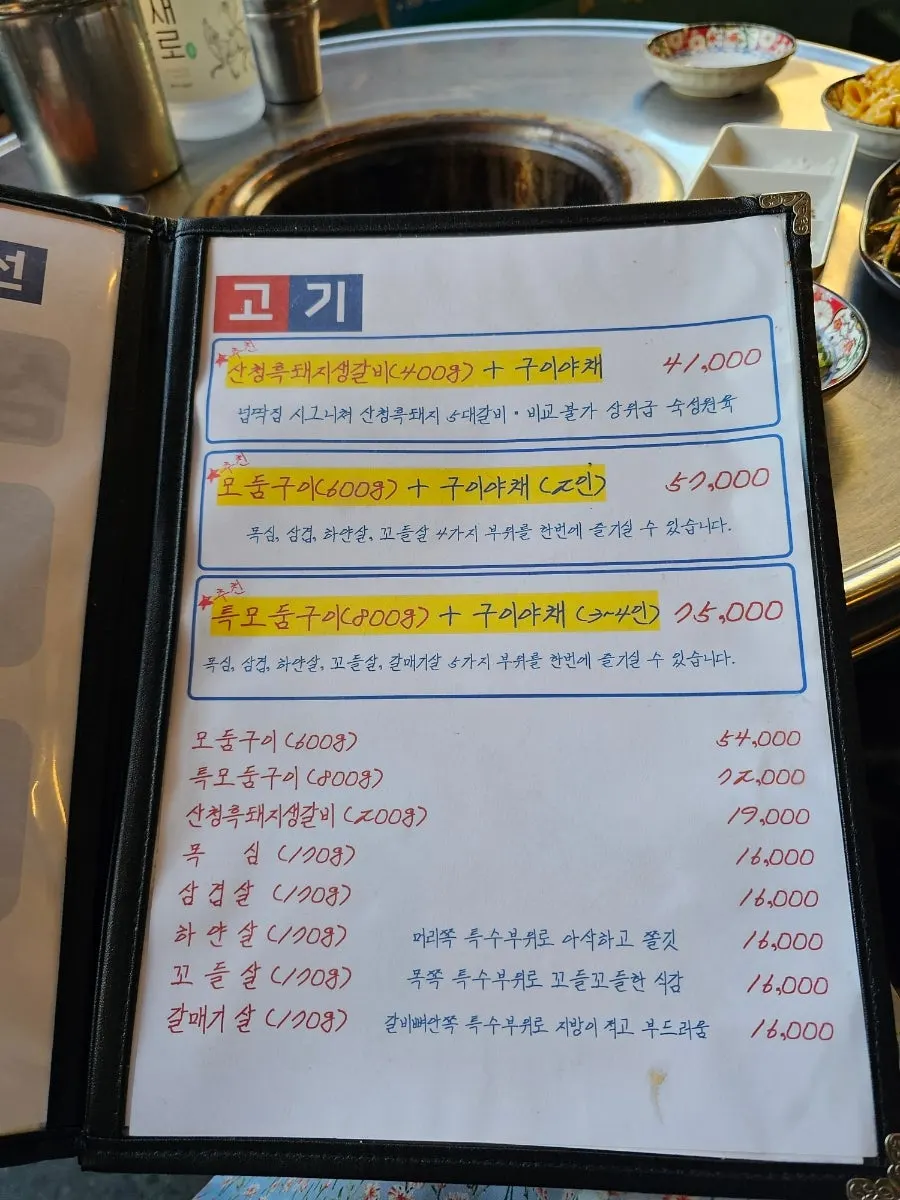 새로
선
고기
★추천
산청흑돼지생갈비(400g) + 구이야채 41,000
넙딱집 시그니쳐 산청흑돼지 5대갈비 · 비교불가 상위급 숙성원육
★추천
모둠구이(600g) + 구이야채 (2인) 57,000
목심, 삼겹, 하얀살, 꼬들살 4가지 부위를 한번에 즐기실 수 있습니다.
★추천
특모둠구이(800g) + 구이야채 (3~4인) 75,000
목심, 삼겹, 하얀살, 꼬들살, 갈매기살 5가지 부위를 한번에 즐기실 수 있습니다.
모둠구이(600g) 54,000
특모둠구이(800g) 72,000
산청흑돼지생갈비(200g) 19,000
목심 (170g) 16,000
삼겹살 (170g) 16,000
하얀살 (170g) 머리쪽 특수부위로 아삭하고 쫄깃 16,000
꼬들살 (170g) 목쪽 특수부위로 꼬들꼬들한 식감 16,000
갈매기살 (170g) 갈비뼈안쪽 특수부위로 지방이 적고 부드러움 16,000